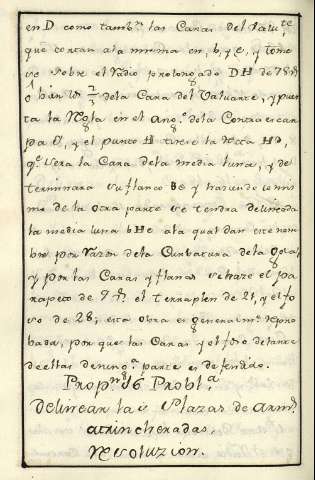 en D como tambn. las Caras del Valute,
que cortan ala misma en, b, y e, y tome
se sobre el Radio prolongado DH de 78
o bien los 2/3 dela Cara del Valuante, y pues
ta la Regla en el Ango. dela Contraescar
pa O, y el punto H tirese la Recta HD,
qe. sera la Cara dela media luna, y de
terminara su flanco Be y haciendo lo mis
mo dela otra parte se tendra delineada
la media luna bHe ala qual dan este nom
bre por razon dela Curbatura dela gola
y por las Caras y flancos se haze el pa
rapeto de 9 el terraplen de 21, y el fo
so de 28; esta obra es generalmte. Repro
bada, por que las Caras y el foso delante
de ellas de ninga. parte es defendido.
Propn. 16 Probla.
Delinear las Plazas de Arms.
atrincheradas.
Resoluzion.